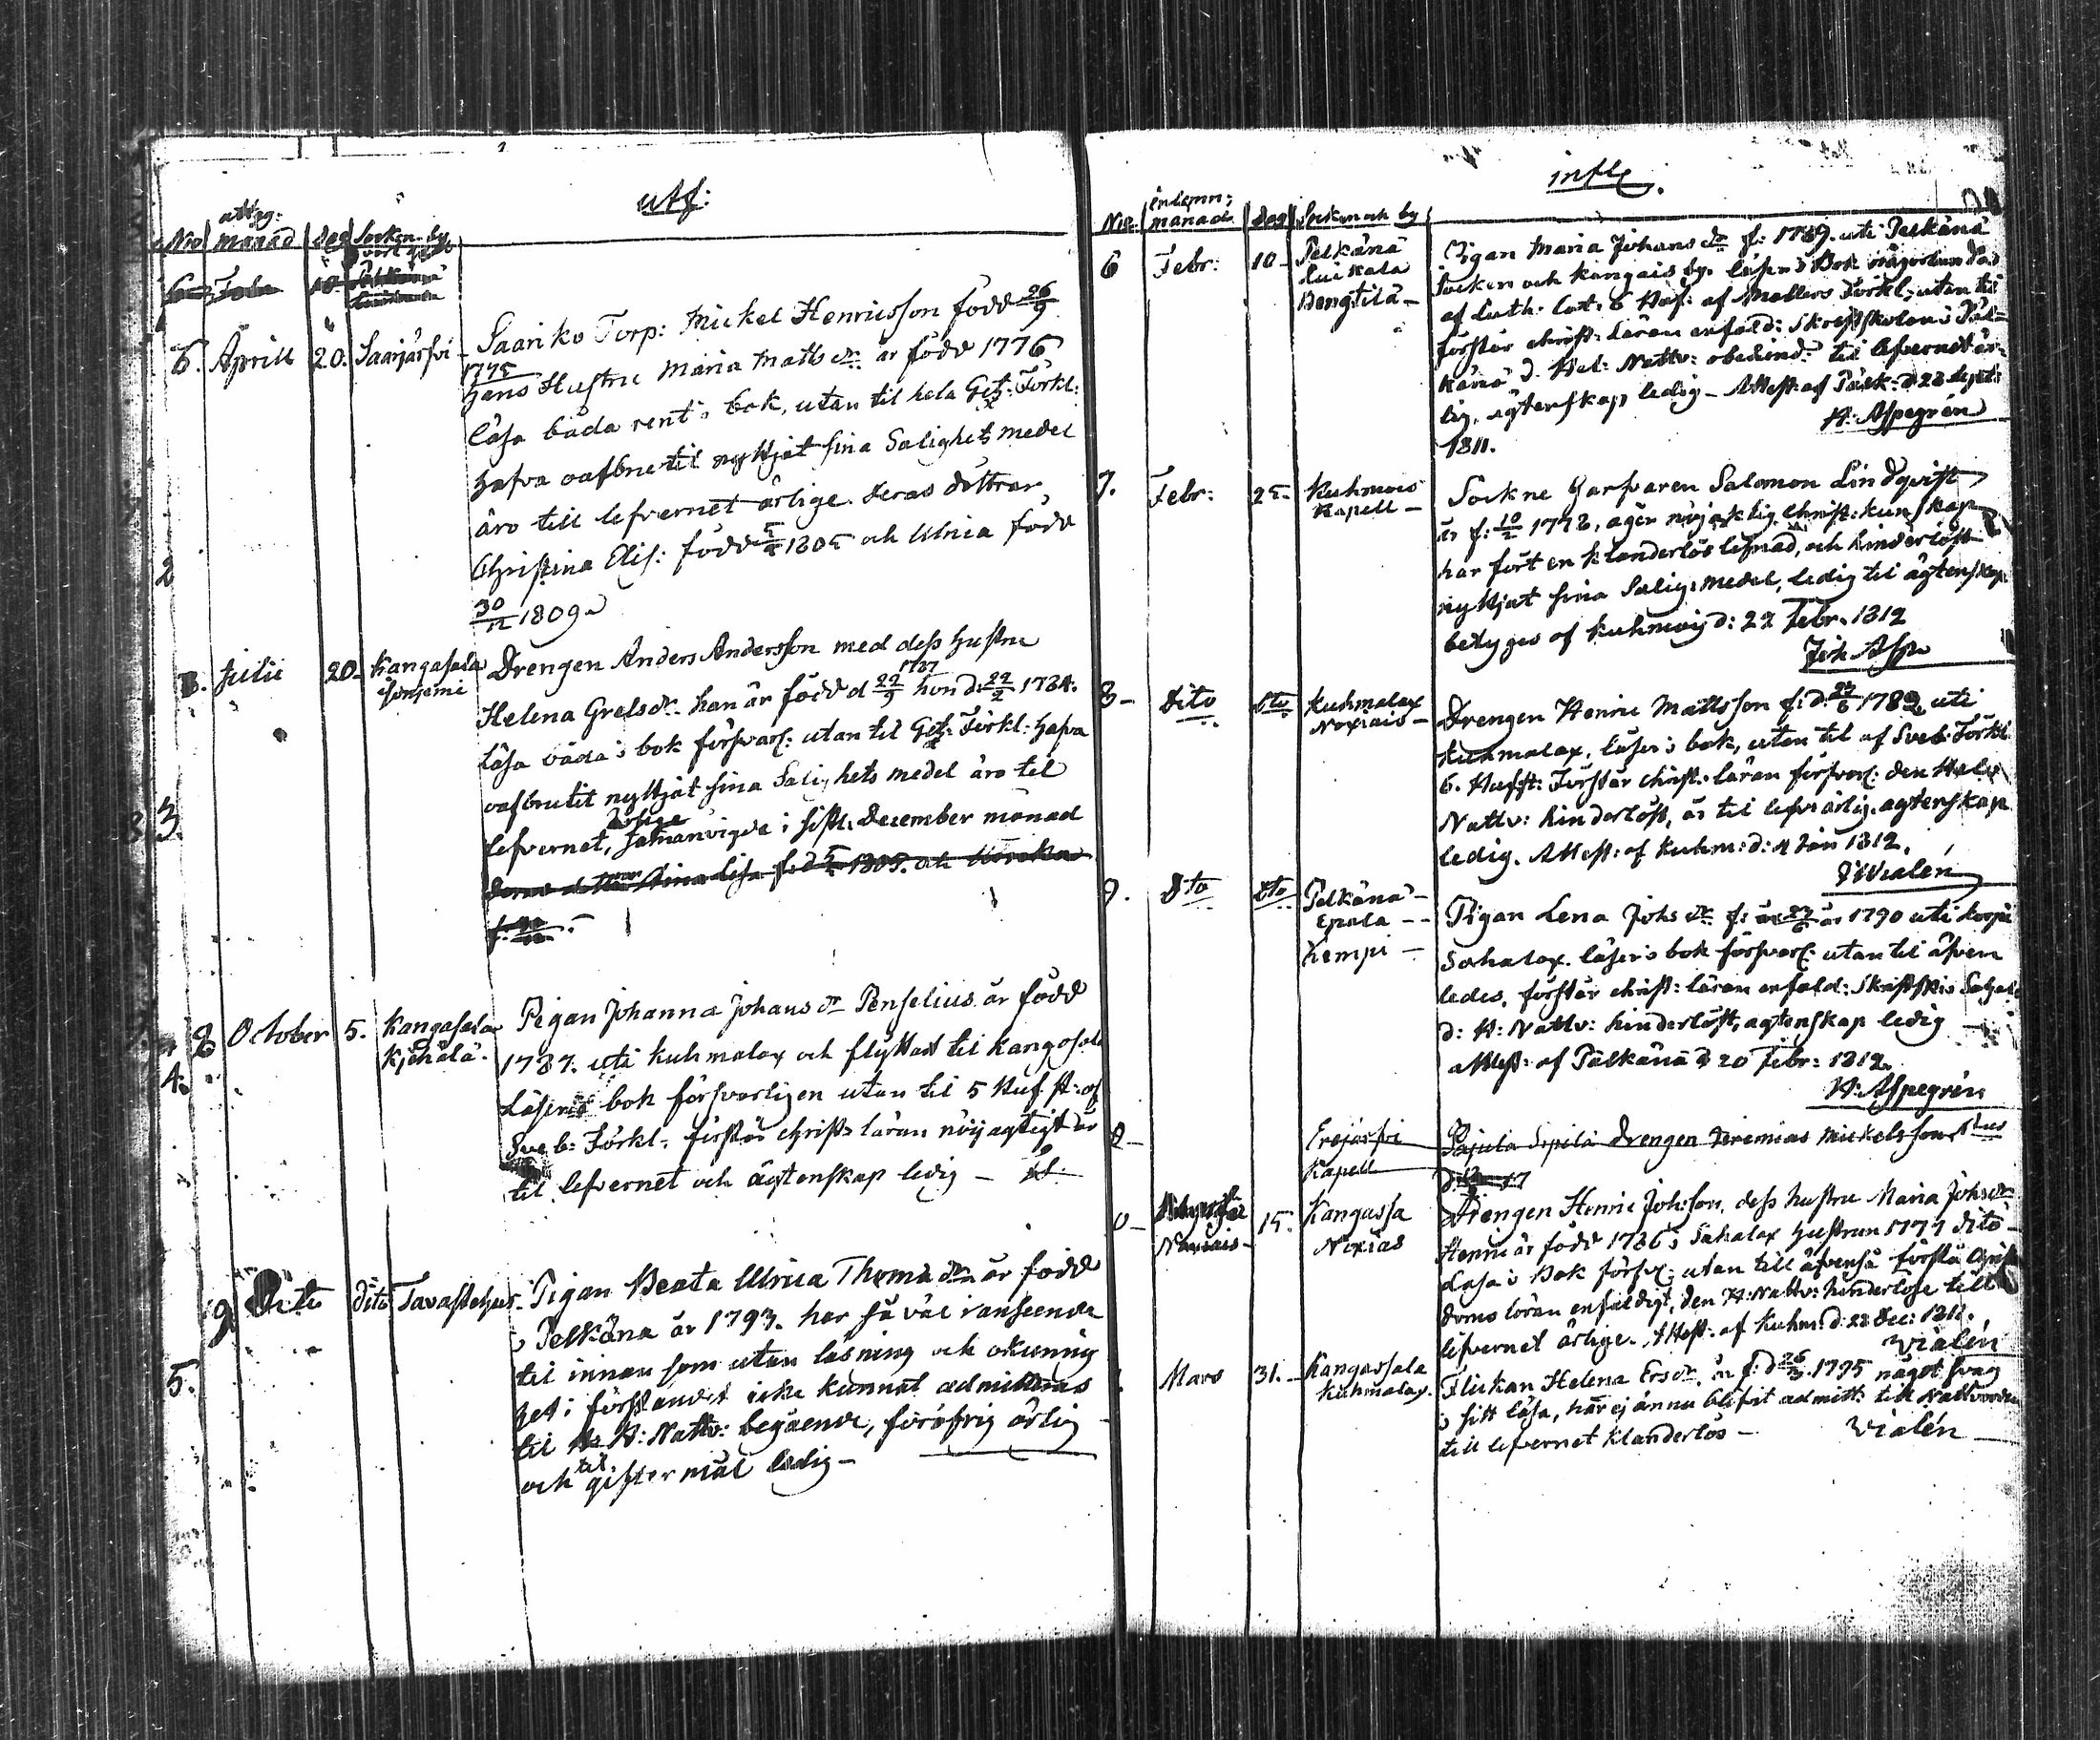 utf:
Nro utteg: månad dag Socken by
6. Aprill 20. Saarjärfvi
Saariko Torp: Mickel Henricsson född 26/9
1775 hans Hustru Maria Matts dr. är född 1776
läsa båda rent i bok, utan til hela Gez: Förkl:
hafva oafbrutit nyttjat sina Salighets medel
äro till lefvernet ärlige. deras döttrar
Christina Elis: född 1805 och Ulrica född
30/12 1809
julii 20. Kangasala
Drengen Anders Andersson med dess hustru
Helena Grels dr. han är född d 22/9 1787 hon d: 22/2 1784.
läsa båda i bok försvarl: utan til Gez: Förkl: hafva
oafbrutit nyttjat sina Salighets medel äro til
lefvernet, ärlige samanvigde i sistl. December månad
8 October 5. Kangasala
Pigan Johanna Johans dr Penselius är född
1787. uti Kuhmalax och flyttad til Kangasala
Läser i bok försvarligen utan til 5 Huf. st: af
Sveb: Förkl. förstår christ. läran nöijagtigt är
til lefvernet och ägtenskap ledig –
9 Dito dito Tavastehus
Pigan Beata Ulrica Thoma dr. är född
i Pelkäna år 1793. har så väl i anseende
til innan som utan läsning och okunnig
het i förståndet icke kunnat admitteras
til H: Nattv: begående, föröfrig ärlig
och til giftermål ledig –
2
3
4.
5.
infl
Nro inkomn: månad dag Socken och by
6 Febr: 10 – Pelkänä
Luikala
Bengtilä –
Pigan Maria Johans dr f: 1789. uti Pelkänä
Socken och Kangais by. läser i Bok
af Luth. Cat: 6 Huf: af Mallers Förkl; utan til
förstår christ: läran enfald: Skriftskolan i Päl-
känä d. Hel: Nattv: obehind: til lefvernet är-
lig, ägtenskap ledig – Attest: af Pälk: d 28 Sept:
1811. H: Aspegrén
7. Febr: 25. Kuhmois
Kapell –
Sockne Garfvaren Salomon Lindqvist
är f: 10/2 1778, äger nöjagtig Christ: kunskap
har fört en klanderlös lefnad, och hinderlöst
nyttjat sina Salig: medel, ledig til ägtenskap
betyges af Kuhmois d: 22 Febr. 1812
8 – Dito dto Kuhmalax
Noxiais –
Drengen Henric Mattsson f: d: 1789 uti
Kuhmalax, läser i bok, utan til af Sveb. Förkl
6. Hufst: Förstår christ. läran försvarl: den Hel
Nattv: hinderlöst, är til lefv: ärlig. ägtenskap
ledig. Attest: af Kuhm: d: 4 Jan 1812.
Wialén
9. Dto dto Pelkänä –
Epala –
Kempi –
Pigan Lena Johs dr f: år 1790 uti
Sahalax. läser i bok försvarl: utan til äfven
ledes, förstår christ: läran enfald: Skriftsk: i Sahal
d: H: Nattv: hinderlöst, ägtenskap ledig –
attest: af Pälkänä d 20 Febr: 1812.
H: Aspegrén
Erajärfvi
Kapell
drengen Jeremias Mickelsson
0 – 15. Kangassa
Noxias
Drengen Henric Joh:son, dess hustru Maria Johsdr
Henric är född 1786 i Sahalax hustrun 1777 dito
läsa i Bok försv: utan till äfvenså förstå Christ
doms läran enfaldigt, den H: Nattv: hinderlöse till
lefvernet ärlige. Attest: af Kuhm: d: 28 Dec: 1811.
Wialén
Mars 31. – Kangassala
Kuhmalax.
Flickan Helena Ersdr. är f: d 26/3 1795 något svag
i sitt läsa, har ej ännu blifvit admitt: till Nattvarden
till lefvernet klanderlös –
Wialén